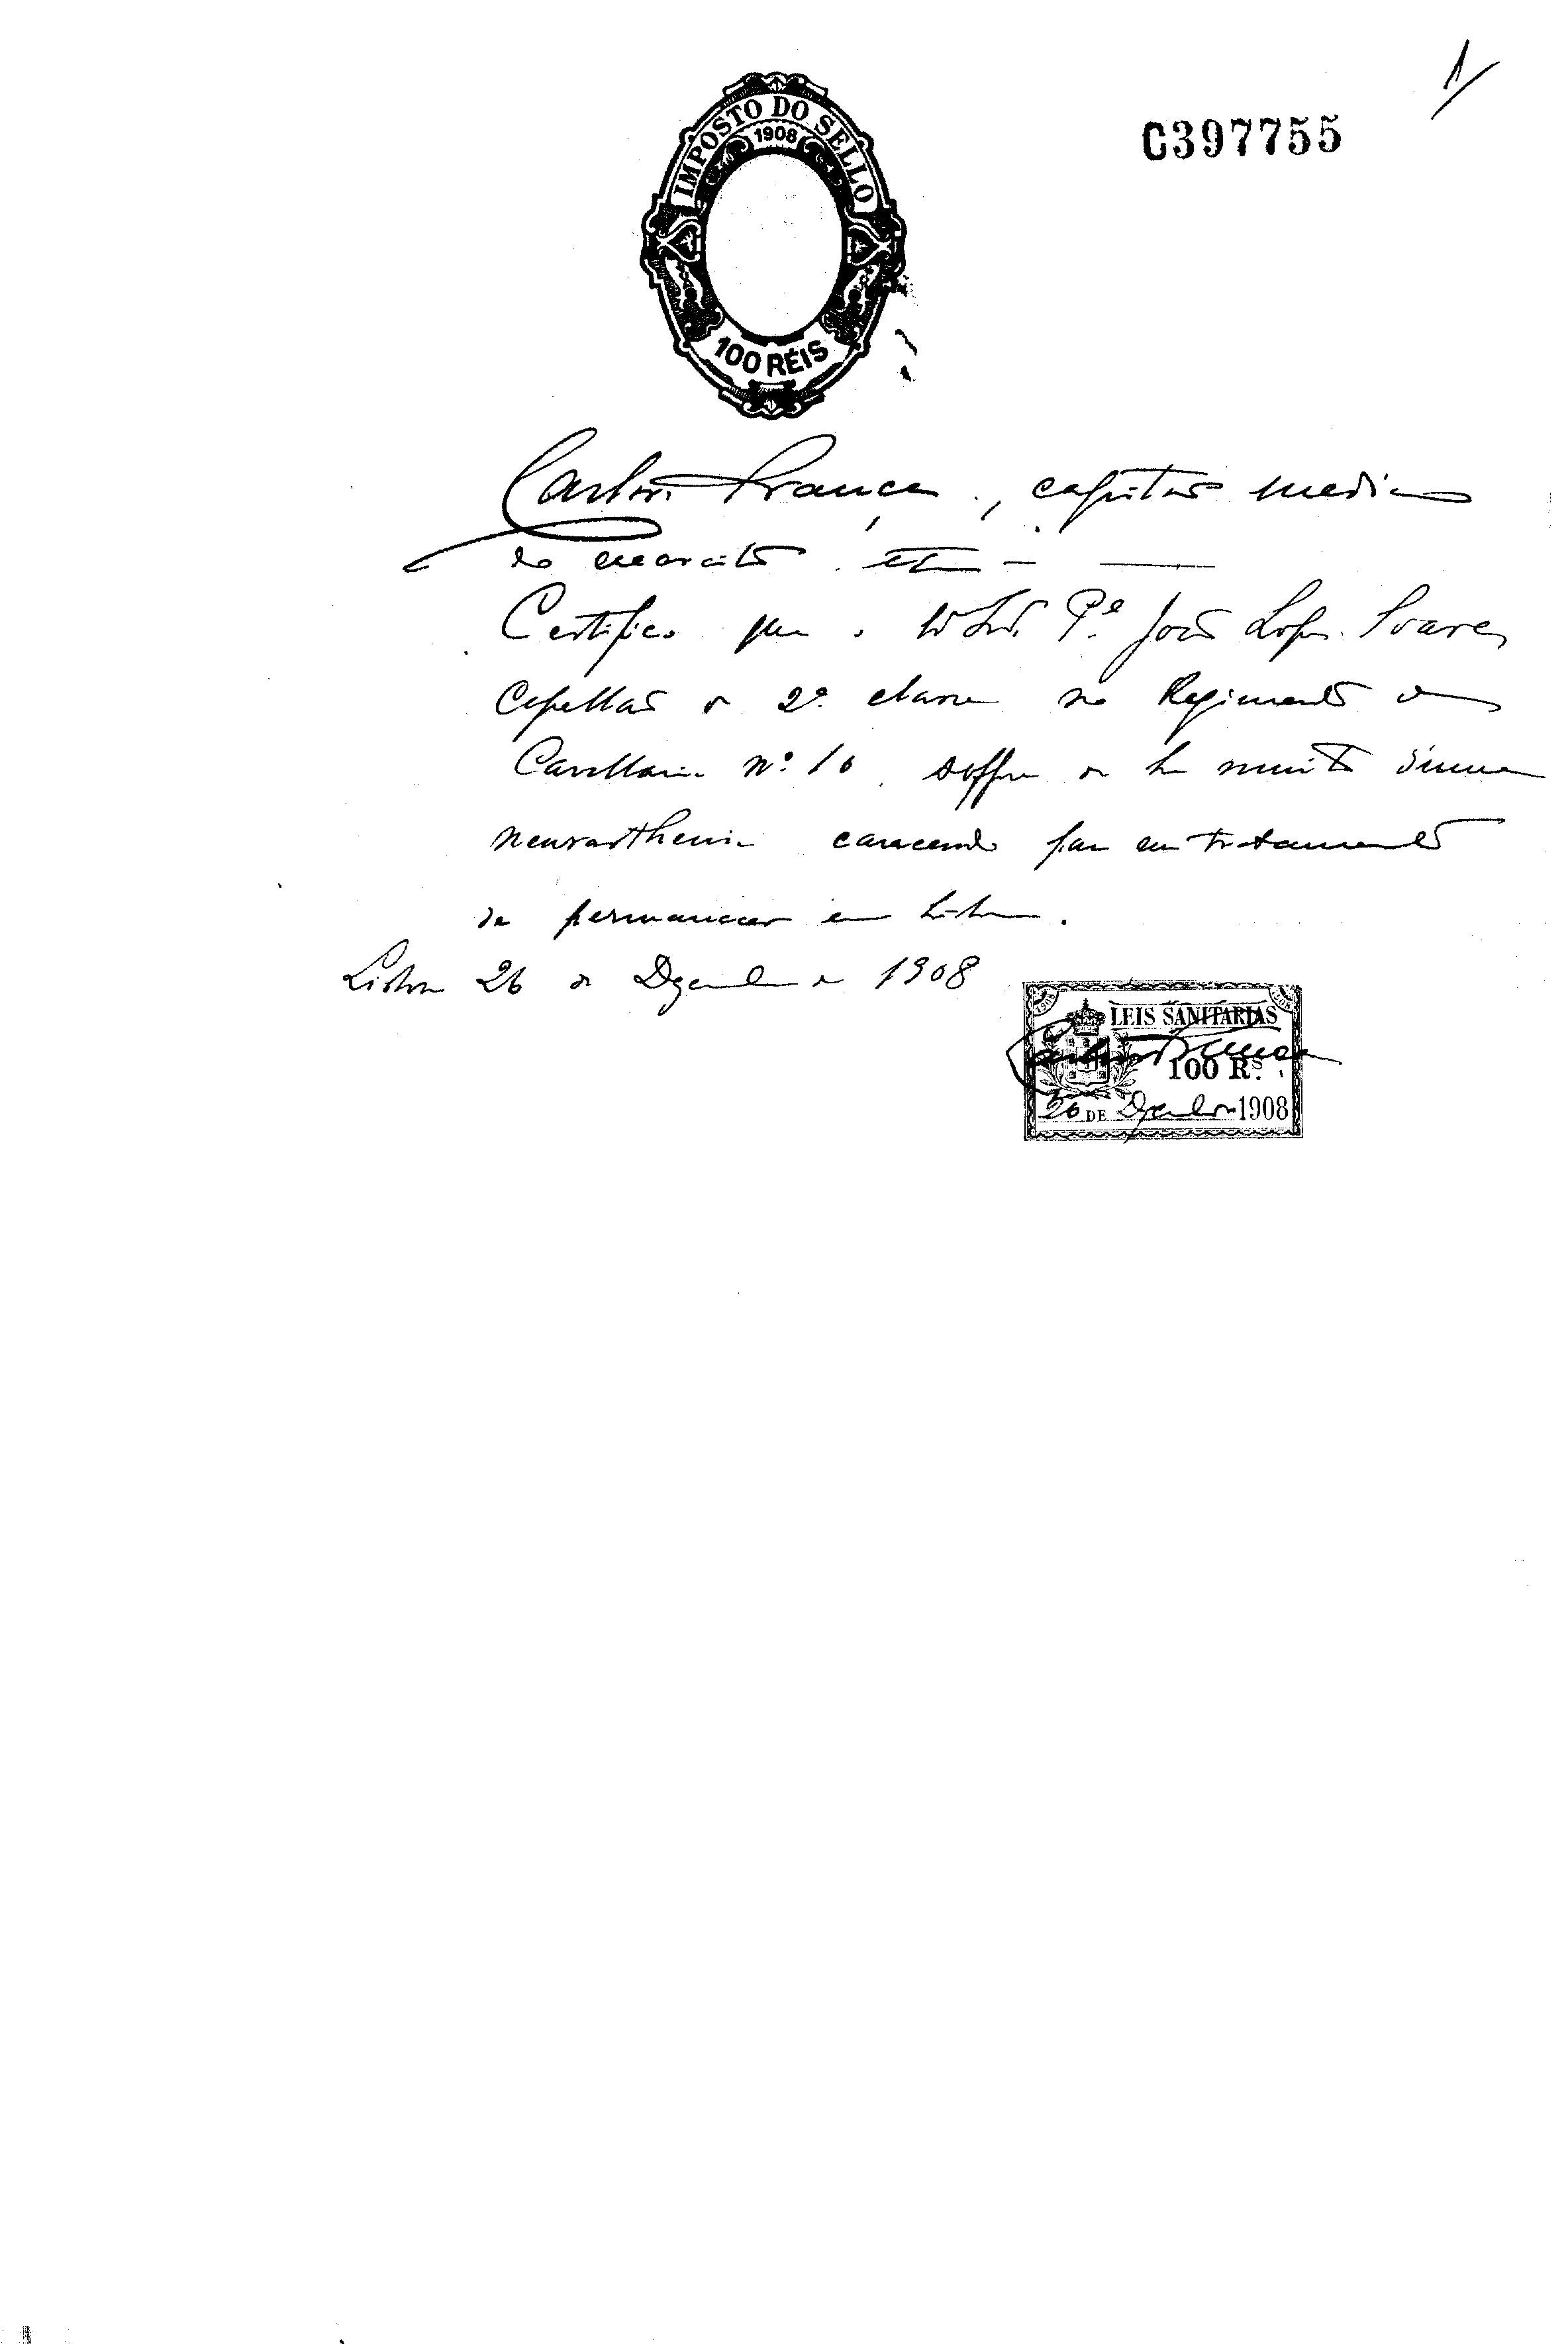 1
C397755
IMPOSTO DO SELLO
1908
100 RÉIS
Carlos França, capitão medico
do exercito etc
Certifico que o Pe. João Lopes Soares
Capellão de 2ª classe do Regimento de
Cavallaria Nº 10 soffre de ha muito d'uma
neurasthenia carecendo para seu tratamento
de permanecer em Lisboa.
Lisboa 26 de Dezembro de 1908
LEIS SANITARIAS
Carlos França
100 Rs.
26 DE Dezembro 1908